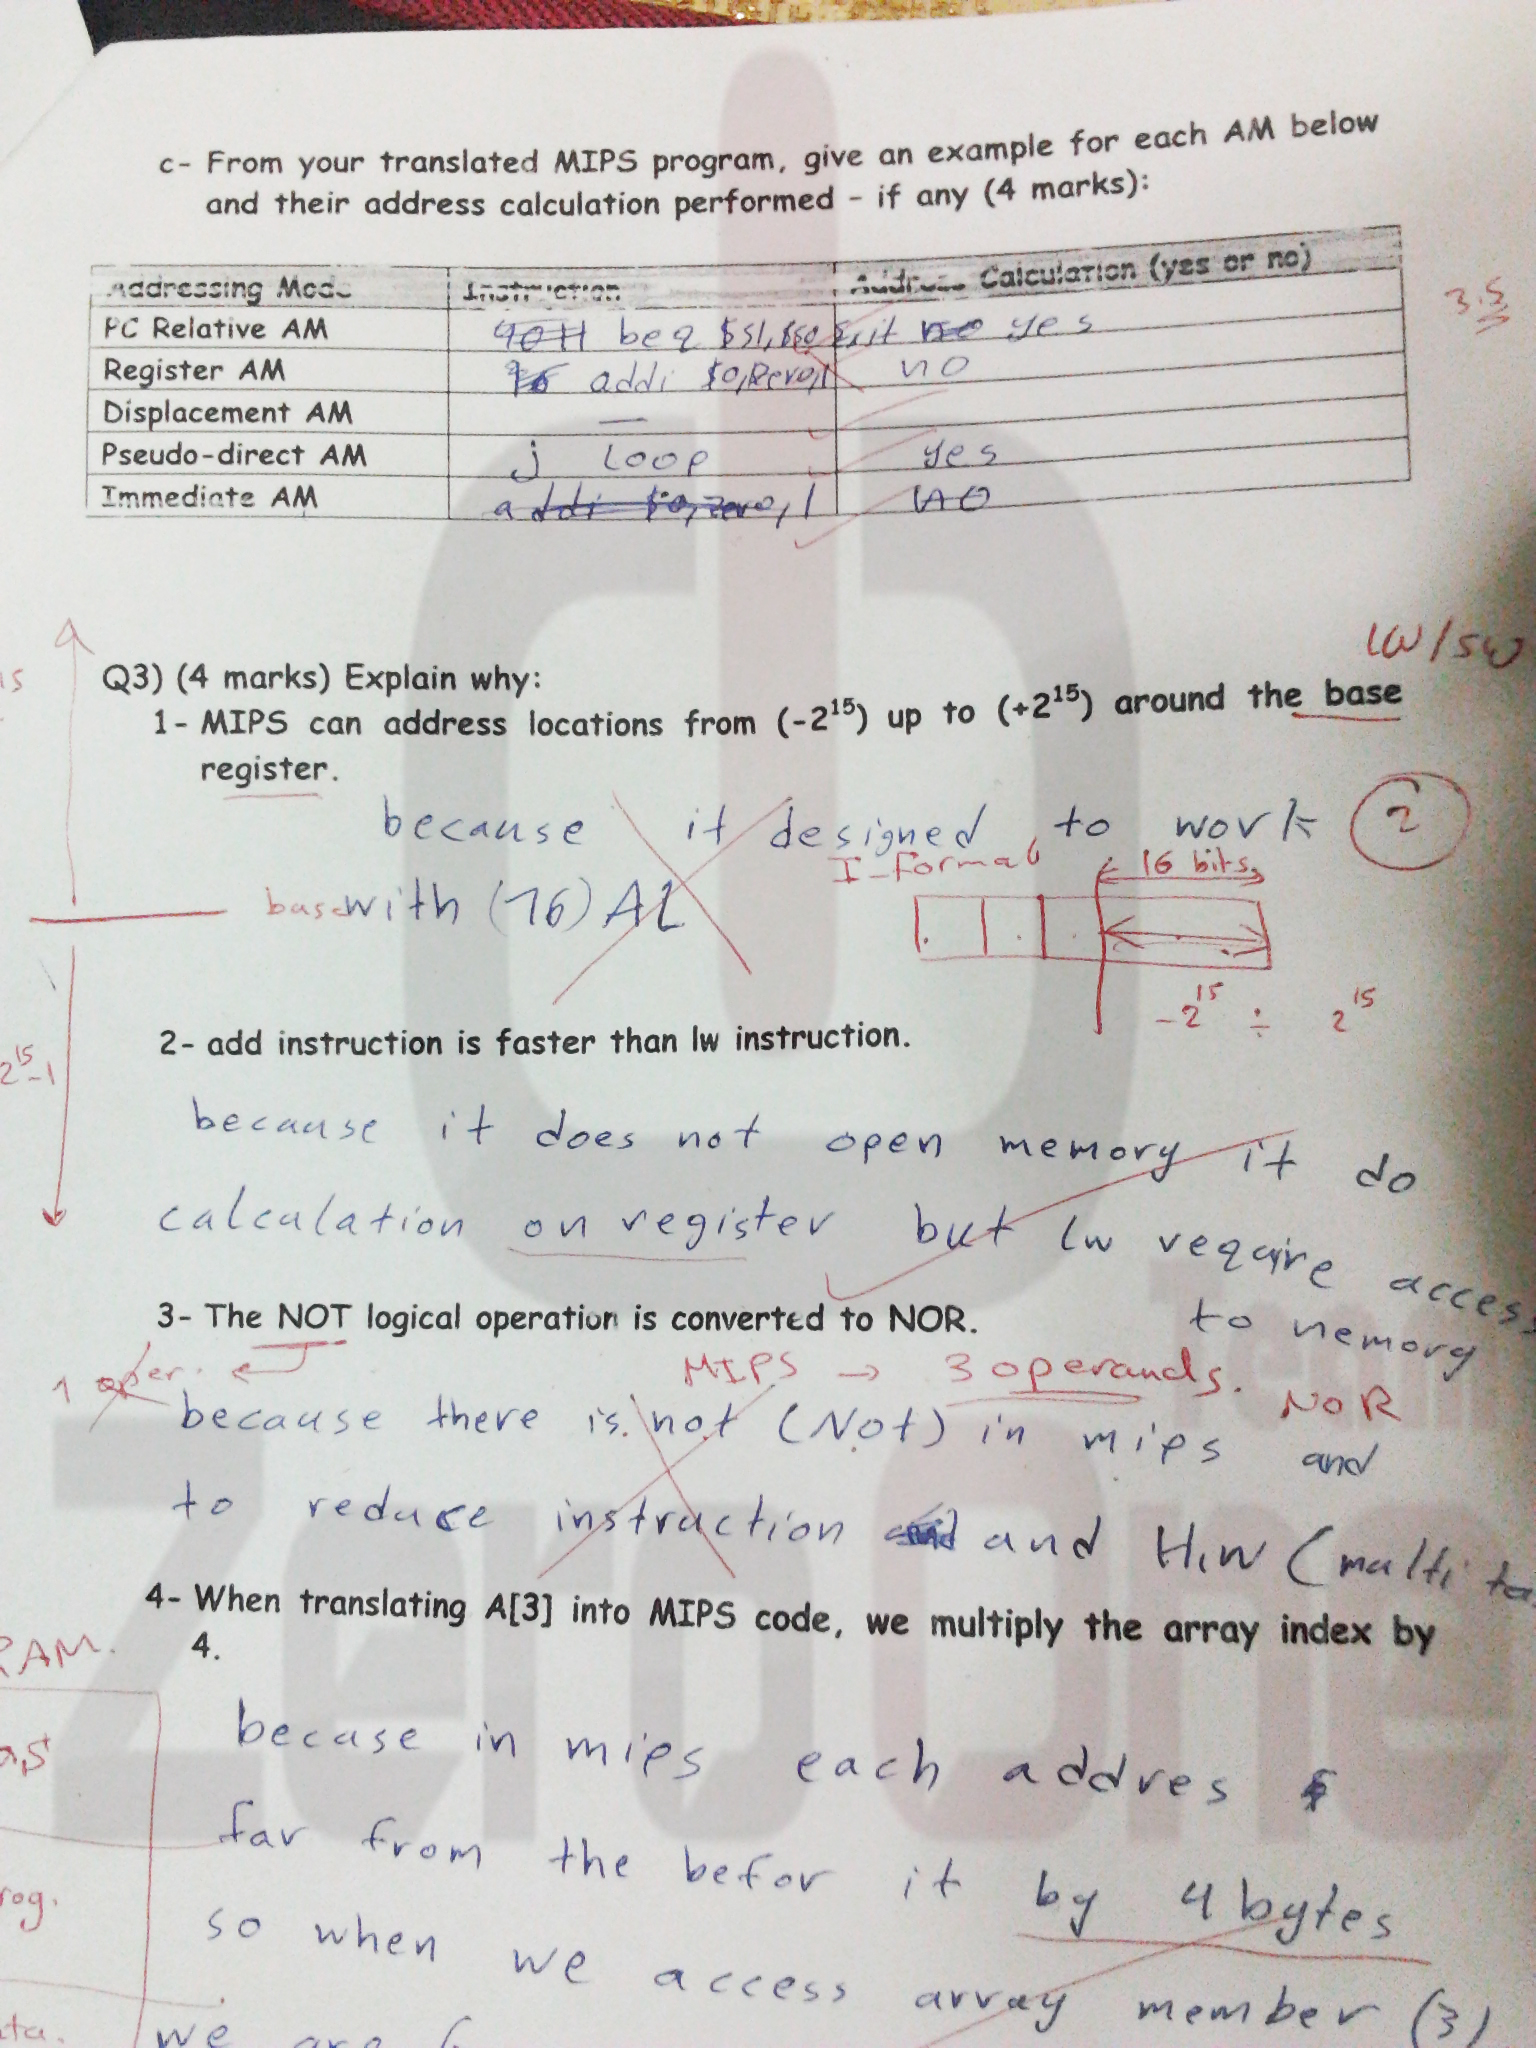 c- From your translated MIPS program, give an example for each AM below
and their address calculation performed - if any (4 marks):
Addressing Mode Instruction Address Calculation (yes or no)
3.5
PC Relative AM beq $s1,$s0 Exit no yes
Register AM addi $0,Zero,1 no
Displacement AM —
Pseudo-direct AM j Loop yes
Immediate AM addi $0,zero,1 no
lw/sw
Q3) (4 marks) Explain why:
1- MIPS can address locations from (-2¹⁵) up to (+2¹⁵) around the base
register.
because it designed to work
2
I-format 16 bits
base with (16)
-2¹⁵ ÷ 2¹⁵
2- add instruction is faster than lw instruction.
2¹⁵-1
because it does not open memory it do
calculation on register but lw require access
to memory
3- The NOT logical operation is converted to NOR.
1 oper. MIPS → 3 operands.
NOR
because there is not (Not) in mips and
to reduce instruction and H.W (multi
4- When translating A[3] into MIPS code, we multiply the array index by
4.
RAM.
becase in mips each addres
far from the befor it by 4 bytes
so when we access array member (3)
we are
Team
ZeroOne